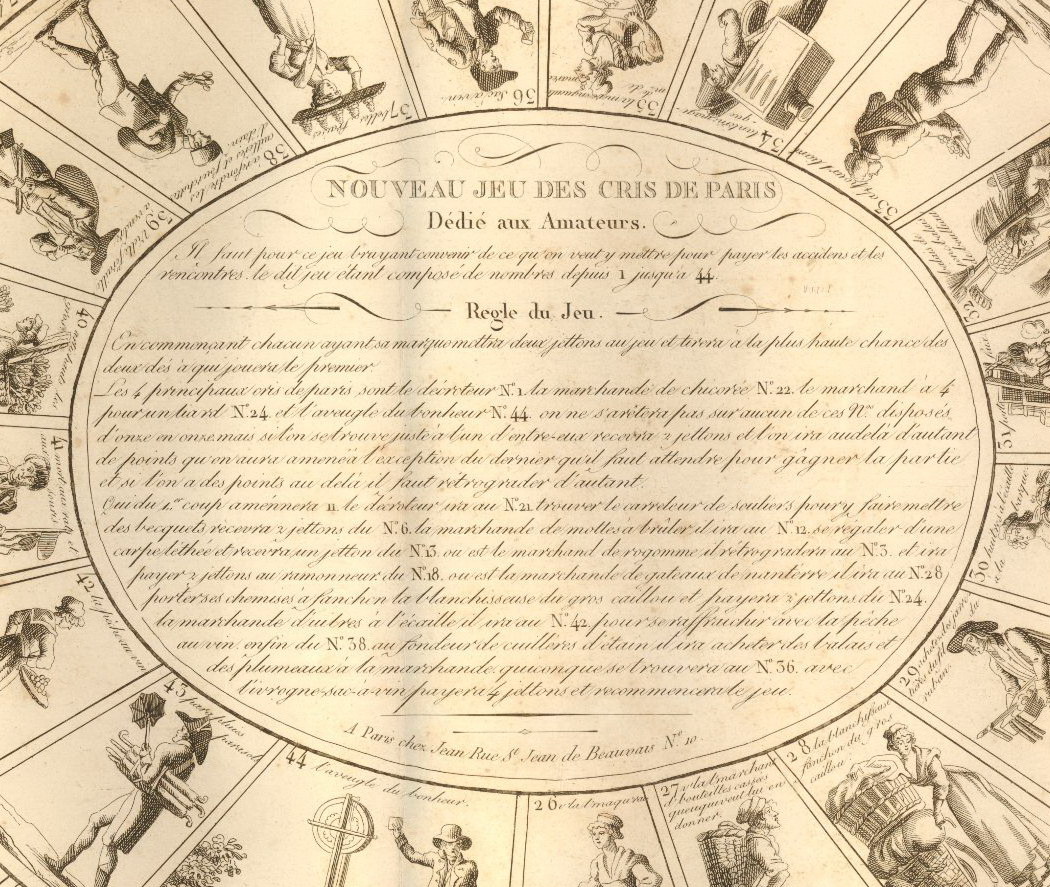 NOUVEAU JEU DES CRIS DE PARIS
Dédié aux Amateurs.
Il faut pour ce jeu bruyant convenir de ce qu'on veut y mettre pour payer les accidens et les
rencontres. le dit jeu étant composé de nombres depuis 1 jusqu'a 44.
Regle du Jeu.
En commençant chacun ayant sa marque mettra deux jettons au jeu et tirera a la plus haute chance des
deux dés à qui jouera le premier
Les 4 principaux cris de paris sont le décroteur N.º 1. la marchande de chicorée N.º 22. le marchand à 4
pour un liard N.º 24. et l'aveugle du bonheur N.º 44. on ne s'arêtera pas sur aucun de ces N.os disposés
d'onze en onze. mais si l'on se trouve juste à l'un d'entre-eux recevra 2 jettons et l'on ira audelà d'autant
de points qu'on aura amené à l'exception du dernier qu'il faut attendre pour gâgner la partie
et si l'on a des points au delà il faut retrograder d'autant.
Qui du 1.er coup aménnera 11. le décroteur ira au N.º 21 trouver le carreleur de souliers pour y faire mettre
des becquets recevra 2 jettons du N.º 6. la marchande de mottes à brûler il ira au N.º 12. se régaler d'une
carpe l'ethée et recevra un jetton du N.º 13. ou est le marchand de rogomme il retrogradera au N.º 3. et ira
payer 2 jettons au ramonneur. du N.º 18. ou est la marchande de gateaux de nanterre il ira au N.º 28
porter ses chemises à fanchon la blanchisseuse du gros caillou et payera 2 jettons du N.º 24.
la marchande d'uitres à l'écaille il ira au N.º 42. pour se raffraichir avec la pèche
au vin. enfin du N.º 38. au fondeur de cuillères d'étain il ira acheter des balais et
des plumeaux à la marchande. quiconque se trouvera au N.º 36. avec
l'ivrogne-sac-a-vin payera 4 jettons et recommencera le jeu.
A Paris chez Jean Rue S.t Jean de Beauvais N.º 10.
26 v'la l'magurau
27 v'la l'marchand
d'bouteilles cassées
queuqui veut lui en
donner.
28 la blanchisseuse
fanchon du gros
caillou
29
30
31
32
33
34
35
36 Sac à vin.
37 belles fraises
38 a refondre les
cuilleres et fourchettes
d'étain
39
40
41
42 la pèche au vin
43 parapluies
44 l'aveugle du bonheur.